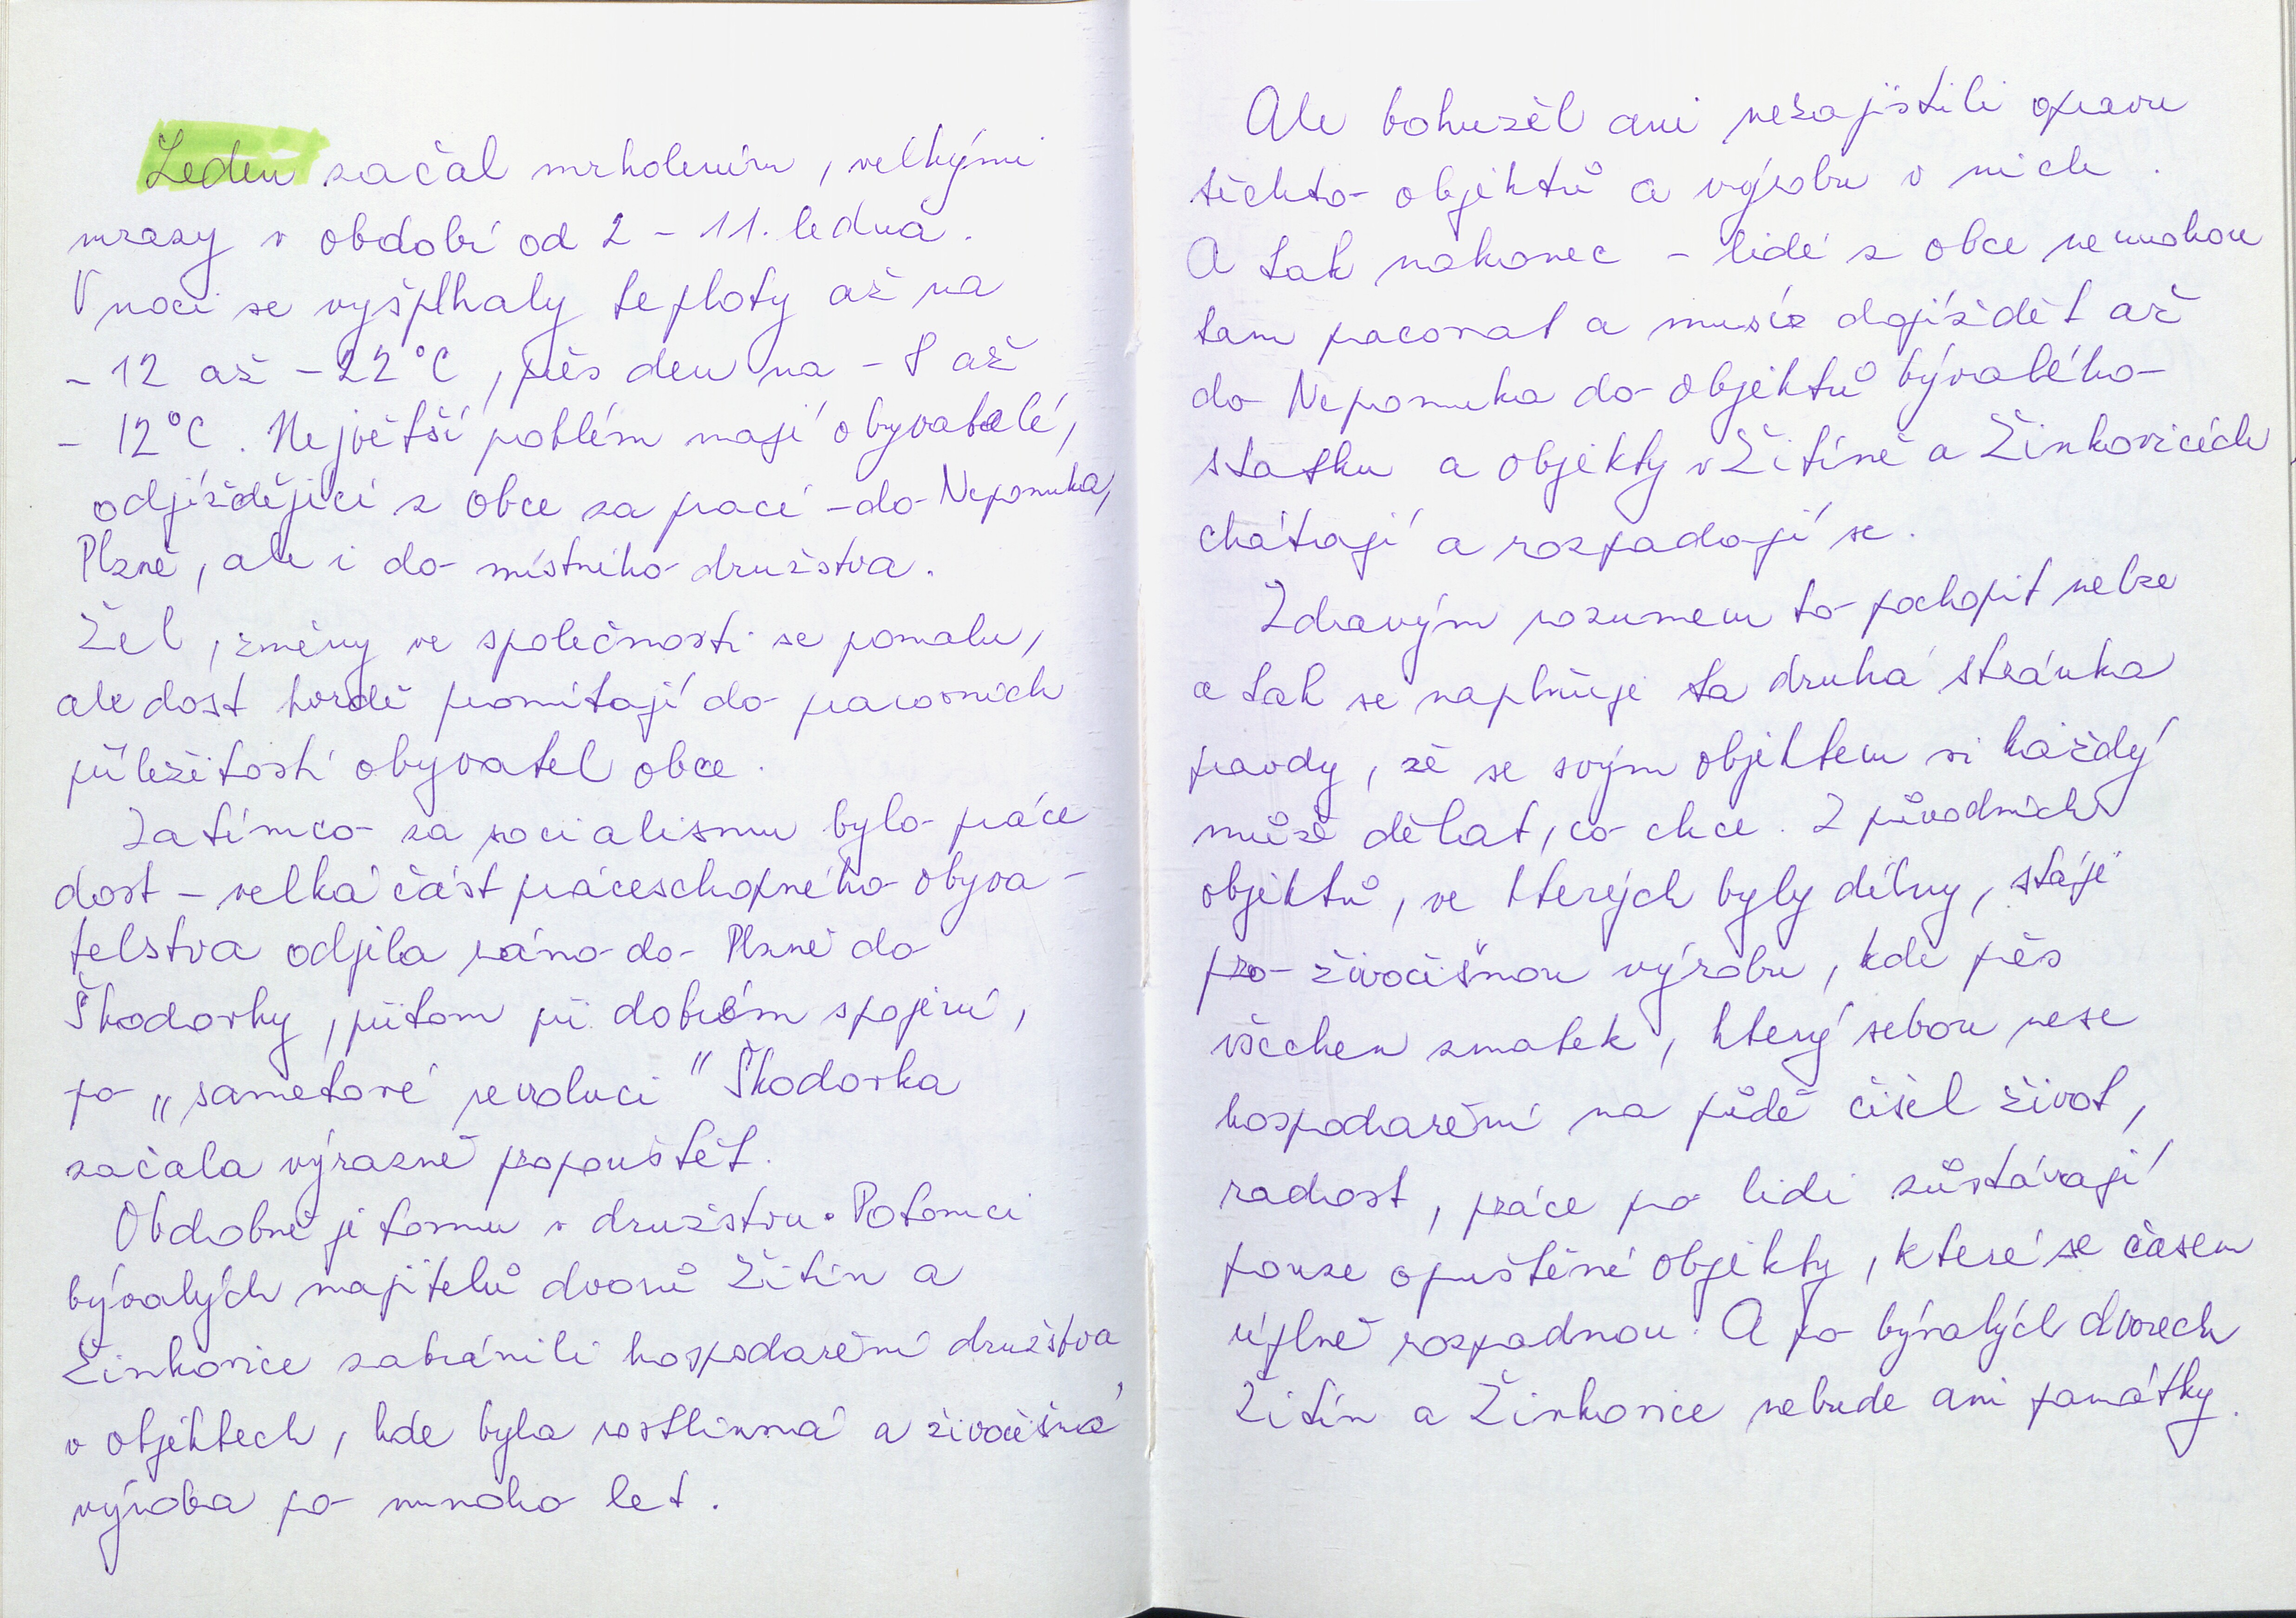 Leden začal mrholením, velkými
mrazy v období od 2 - 11. ledna.
V noci se vyšplhaly teploty až na
- 12 až - 22°C, přes den na - 8 až
- 12°C. Největší problém mají obyvatelé,
odjíždějící z obce za prací - do Nepomuka,
Plzně, ale i do místního družstva.
Žel, změny ve společnosti se pomalu,
ale dost tvrdě promítají do pracovních
příležitostí obyvatel obce.
Zatímco za socialismu bylo práce
dost - velká část práceschopného obyva-
telstva odjela ráno do Plzně do
Škodovky, přitom při dobrém spojení,
po „sametové revoluci" Škodovka
začala výrazně propouštět.
Obdobně je tomu v družstvu. Potomci
bývalých majitelů dvorů Žitín a
Žinkovice zabránili hospodaření družstva
v objektech, kde byla rostlinná a živočišná
výroba po mnoho let.
Ale bohužel ani nezajistili opravu
těchto objektů a výrobu v nich.
A tak nakonec - lidé z obce nemohou
tam pracovat a musí dojíždět až
do Nepomuka do objektů bývalého
statku a objekty v Žitíně a Žinkovicích
chátrají a rozpadají se.
Zdravým rozumem to pochopit nelze
a tak se naplňuje ta druhá stránka
pravdy, že se svým objektem si každý
může dělat, co chce. Z původních
objektů, ve kterých byly dílny, stáje
pro živočišnou výrobu, kde přes
všechen zmatek, který sebou nese
hospodaření na půdě čišel život,
radost, práce po lidi zůstávají
pouze opuštěné objekty, které se časem
úplně rozpadnou. A po bývalých dvorech
Žitín a Žinkovice nebude ani památky.